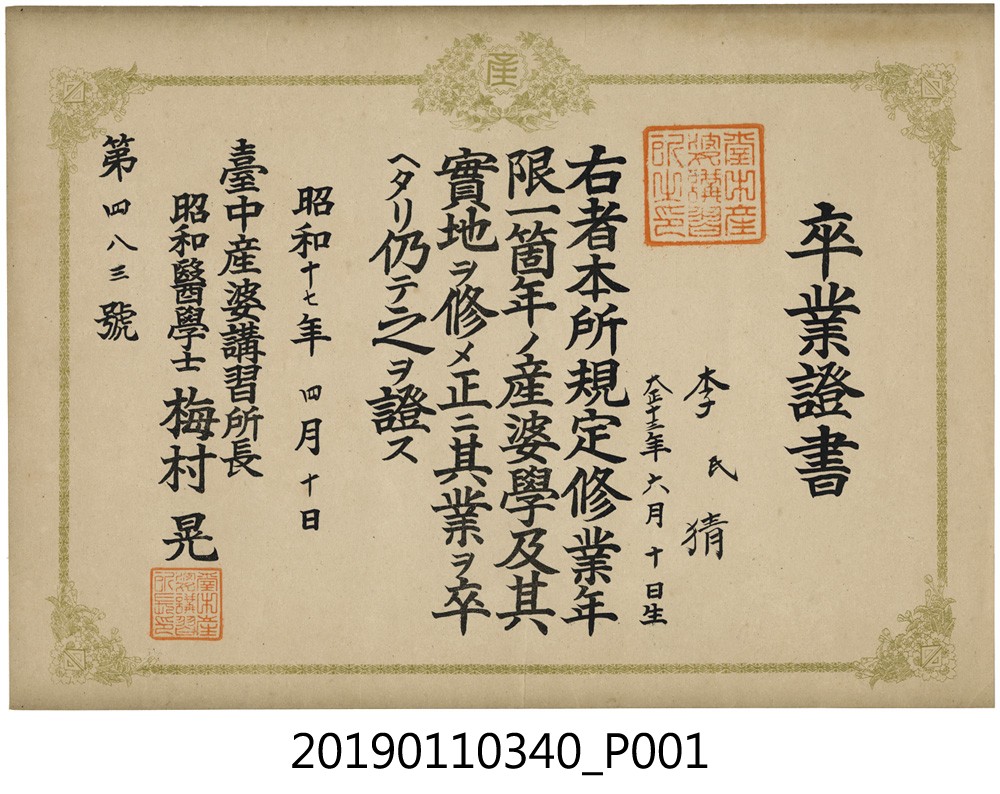 產
卒業證書
臺中產婆講習所之印
李氏猜
大正十三年六月十日生
右者本所規定修業年
限一箇年ノ產婆學及其
實地ヲ修メ正ニ其業ヲ卒
ヘタリ仍テ之ヲ證ス
昭和十七年四月十日
臺中產婆講習所長
昭和醫學士 梅村晃
臺中產婆講習所長印
第四八三號
20190110340_P001